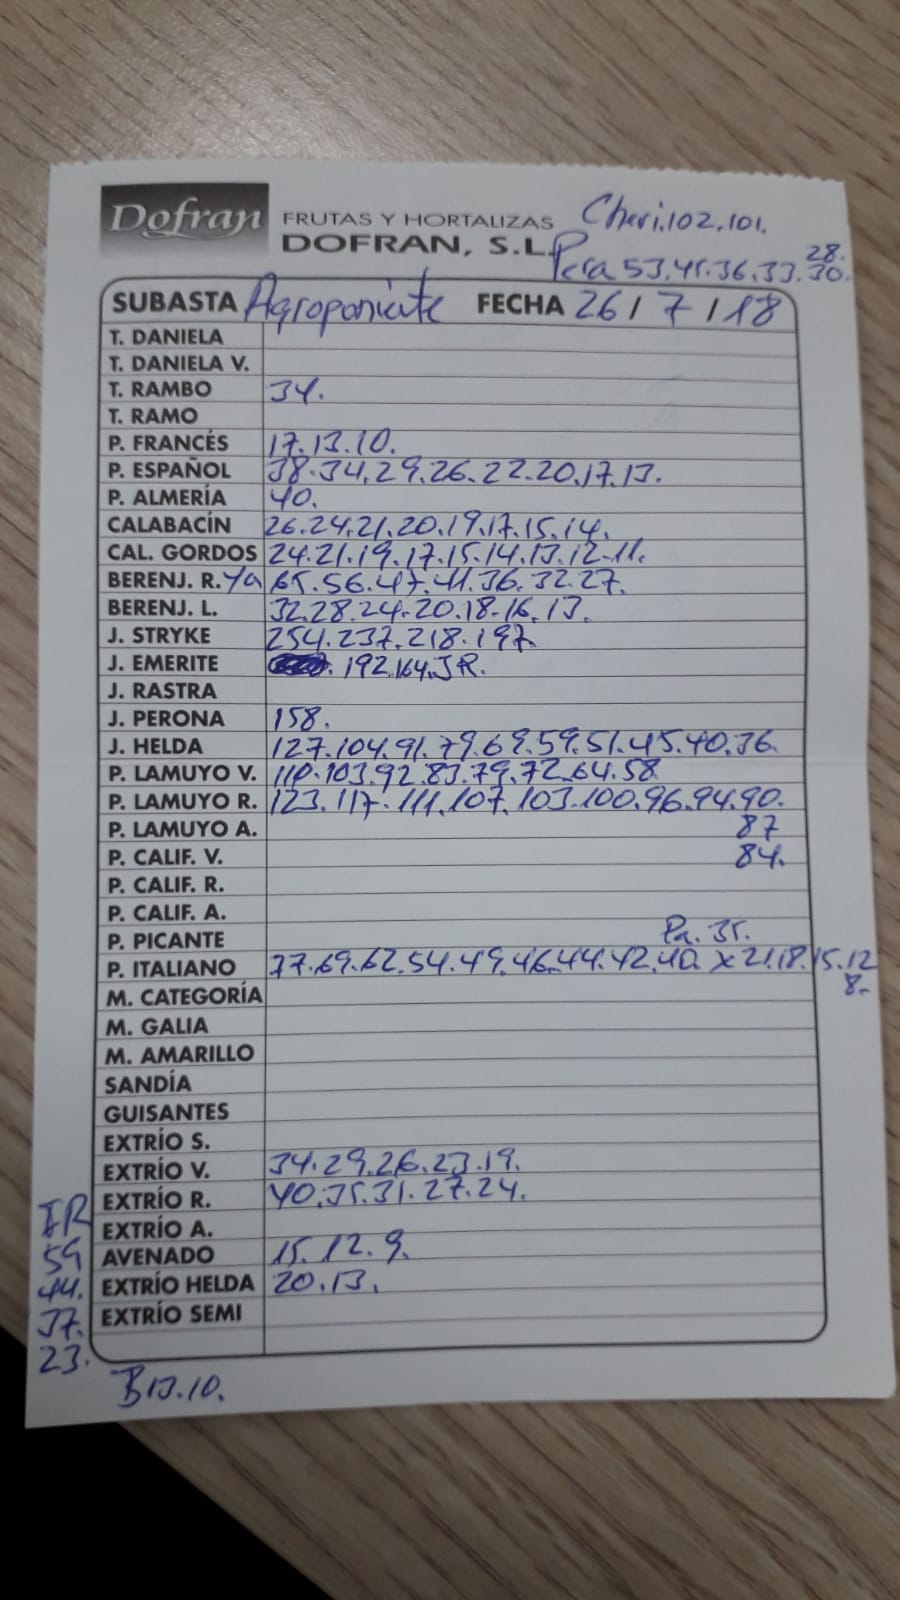 Dofran FRUTAS Y HORTALIZAS Cheri.102.101.
DOFRAN, S.L. Pera 53.45.36.33.30.
28.
SUBASTA Agroponiente FECHA 26/7/18
T. DANIELA
T. DANIELA V.
T. RAMBO 34.
T. RAMO
P. FRANCÉS 17.13.10.
P. ESPAÑOL 38.34.29.26.22.20.17.13.
P. ALMERÍA 40.
CALABACÍN 26.24.21.20.19.17.15.14.
CAL. GORDOS 24.21.19.17.15.14.13.12.11.
BERENJ. R. Ya 65.56.47.41.36.32.27.
BERENJ. L. 32.28.24.20.18.16.13.
J. STRYKE 254.237.218.197.
J. EMERITE 192.164.JR.
J. RASTRA
J. PERONA 158.
J. HELDA 127.104.91.79.69.59.51.45.40.36.
P. LAMUYO V. 110.103.92.83.79.72.64.58
P. LAMUYO R. 123.117.111.107.103.100.96.94.90.
P. LAMUYO A. 87
P. CALIF. V. 84.
P. CALIF. R.
P. CALIF. A.
P. PICANTE Pa. 35.
P. ITALIANO 77.69.62.54.49.46.44.42.40. x 21.18.15.12
8.
M. CATEGORÍA
M. GALIA
M. AMARILLO
SANDÍA
GUISANTES
EXTRÍO S.
EXTRÍO V. 34.29.26.23.19.
EXTRÍO R. 40.35.31.27.24.
EXTRÍO A.
AVENADO 15.12.9.
EXTRÍO HELDA 20.13.
EXTRÍO SEMI
JR
59
44.
37.
23.
B 13.10.